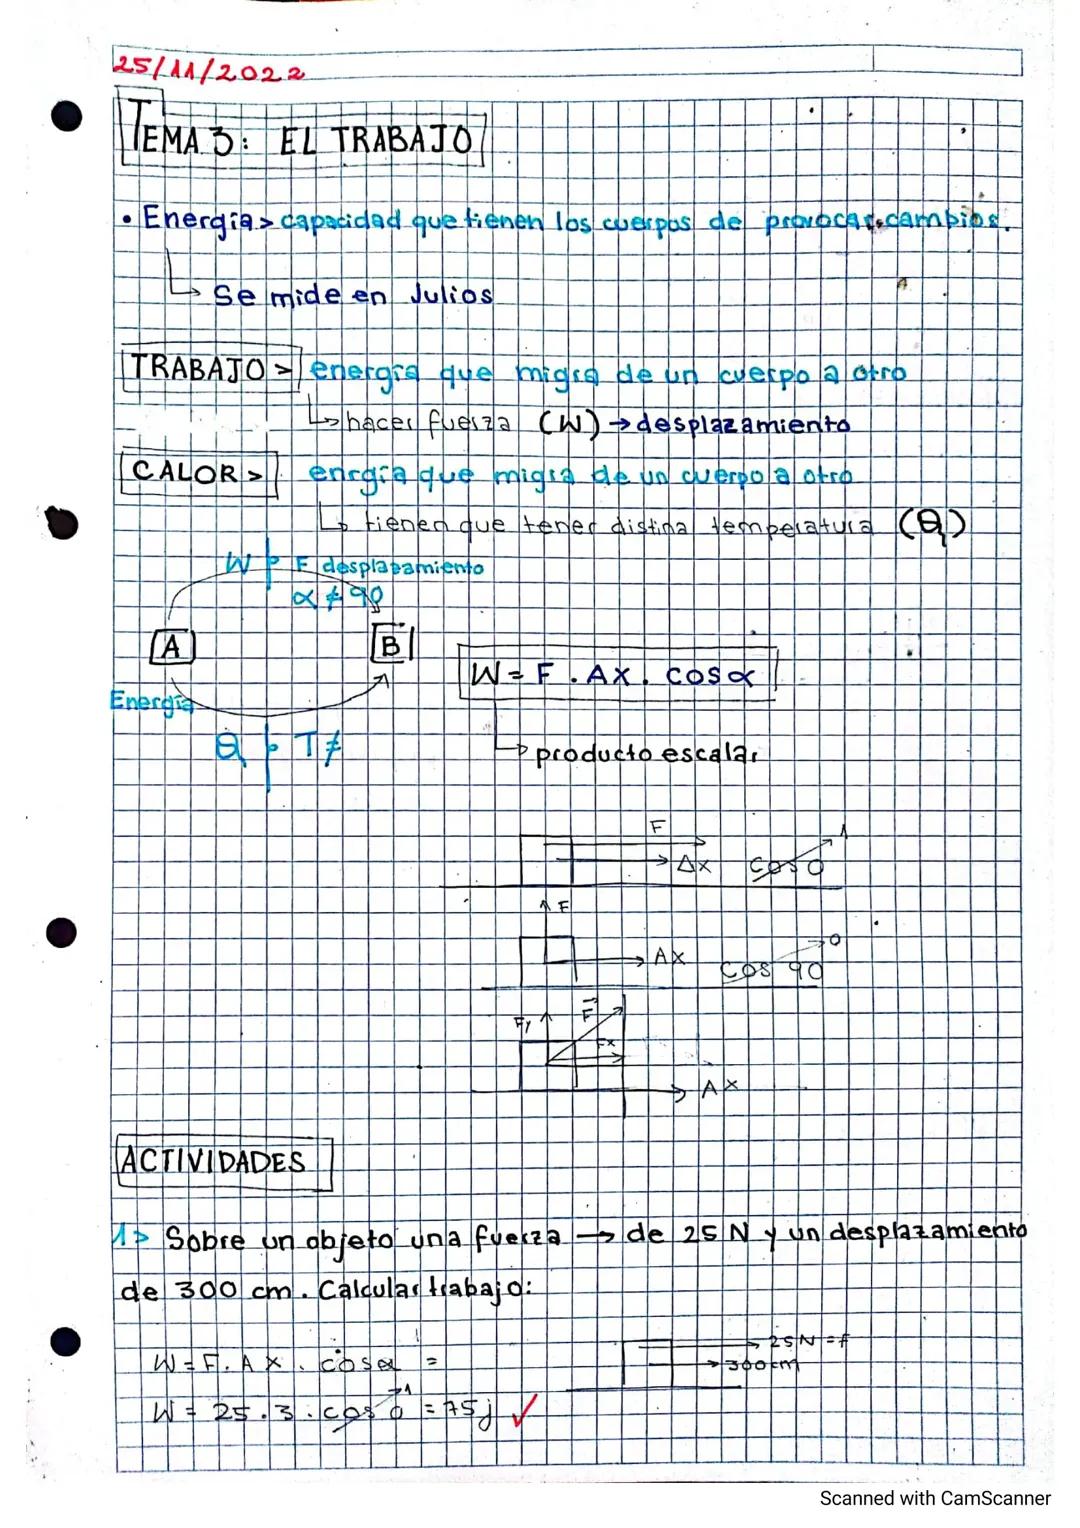 25/11/2022
TEMA 3: EL TRABAJO
• Energía > capacidad que tienen los cuerpos de provocar cambios.
↳ Se mide en Julios
TRABAJO > energía que migra de un cuerpo a otro
↳ hacer fuerza (W) → desplazamiento
CALOR > enrgía que migra de un cuerpo a otro
↳ tienen que tener distina temperatura (Q)
W F desplazamiento
α ≠ 90
A B
W = F . ΔX . cosα
Energía
Q T ≠
↳ producto escalar
F
Δx cos 0 1
F
ΔX cos 90 0
Fy F
Fx
ΔX
ACTIVIDADES
1> Sobre un objeto una fuerza → de 25 N y un desplazamiento
de 300 cm. Calcular trabajo:
25N = f
W = F . ΔX . cosα = 300 cm
W = 25 . 3 . cos 0 1 = 75 j ✓
Scanned with CamScanner